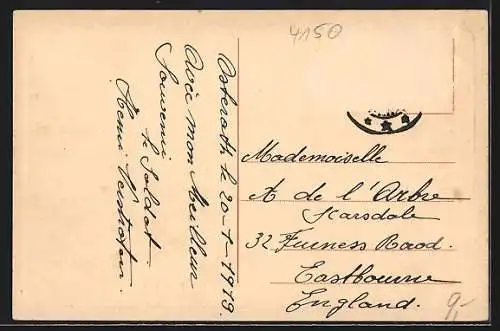 4150
Osterath le 20-1-1919.
Avec mon Meilleur
Souvenir
le Soldat
Henri
Mademoiselle
A de l'Arbre
Scarsdale
32 Furness Raod.
Eastbourne
England.
9,-